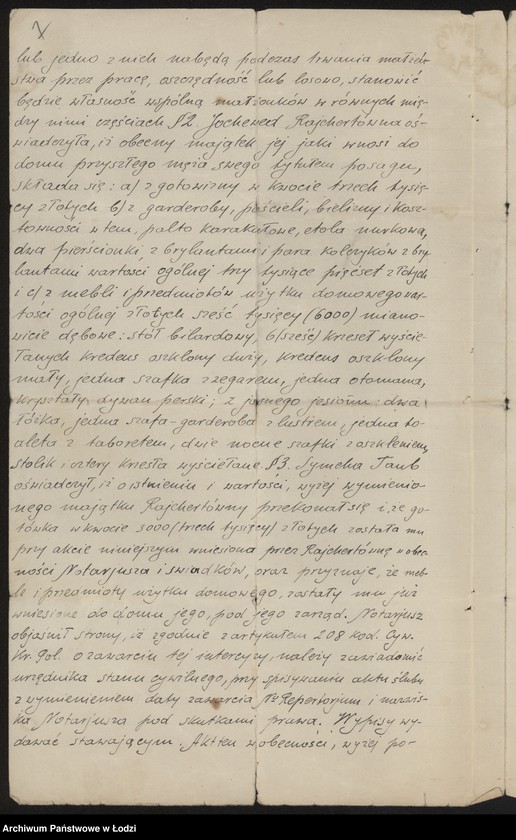 lub jedno z nich nabędą podczas trwania małżeń-
stwa przez pracę, oszczędność lub losowo, stanowić
będzie własność wspólną małżonków w równych mię-
dzy nimi częściach § 2. Jochewed Rajchertówna oś-
wiadczyła, iż obecny majątek jej jaki wnosi do
domu przyszłego męża swego tytułem posagu,
składa się: a) z gotowizny w kwocie trzech tysię-
cy złotych b) z garderoby, pościeli, bielizny i kosz-
towności w tem, palto karakułowe, etola nurkowa,
dwa pierścionki z brylantami i para kolczyków z bry-
lantami wartości ogólnej trzy tysiące pięćset złotych
i c) z mebli i przedmiotów użytku domowego war-
tości ogólnej złotych sześć tysięcy (6000) miano-
wicie dębowe: stół bilardowy, 6 (sześć) krzeseł wyście-
łanych kredens oszklony duży, kredens oszklony
mały, jedna szafka z zegarem, jedna otomana,
kryształy, dywan perski; z jasnego jesionu: dwa
łóżka, jedna szafa-garderoba z lustrem, jedna to-
aleta z taboretem, dwie nocne szafki z oszkleniem,
stolik i cztery krzesła wyściełane. § 3. Symcha Taub
oświadczył, iż o istnieniu i wartości, wyżej wymienio-
nego majątku Rajchertówny przekonał się i, że go-
tówka w kwocie 3000 (trzech tysięcy) złotych została mu
przy akcie niniejszym wniesiona przez Rajchertównę w obec-
ności Notarjusza i świadków, oraz przyznaje, że meb-
le i przedmioty użytku domowego, zostały mu już
wniesione do domu jego, pod jego zarząd. Notarjusz
objaśnił strony, iż zgodnie z artykułem 208 kod. Cyw.
Kr. Pol. o zawarciu tej intercyzy, należy zawiadomić
urzędnika stanu cywilnego, przy spisywaniu aktu ślubu
z wymienieniem daty zawarcia № Repertorjum i nazwis-
ka Notarjusza pod skutkami prawa. Wypisy wy-
dawać stawającym. Akt ten w obecności, wyżej po-
Archiwum Państwowe w Łodzi